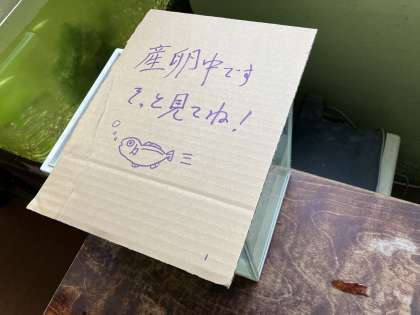 産卵中です
そっと見てね!